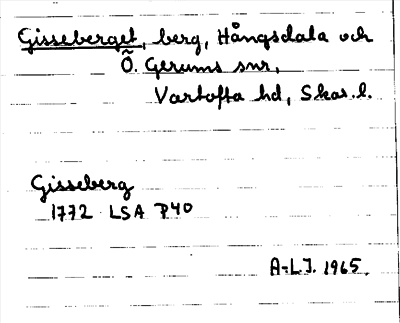 Gisseberget, berg, Hångsdala och
Ö. Gerums snr,
Vartofta hd, Skar. l.
Gisseberg
1772 LSA P40
A-L J. 1965.